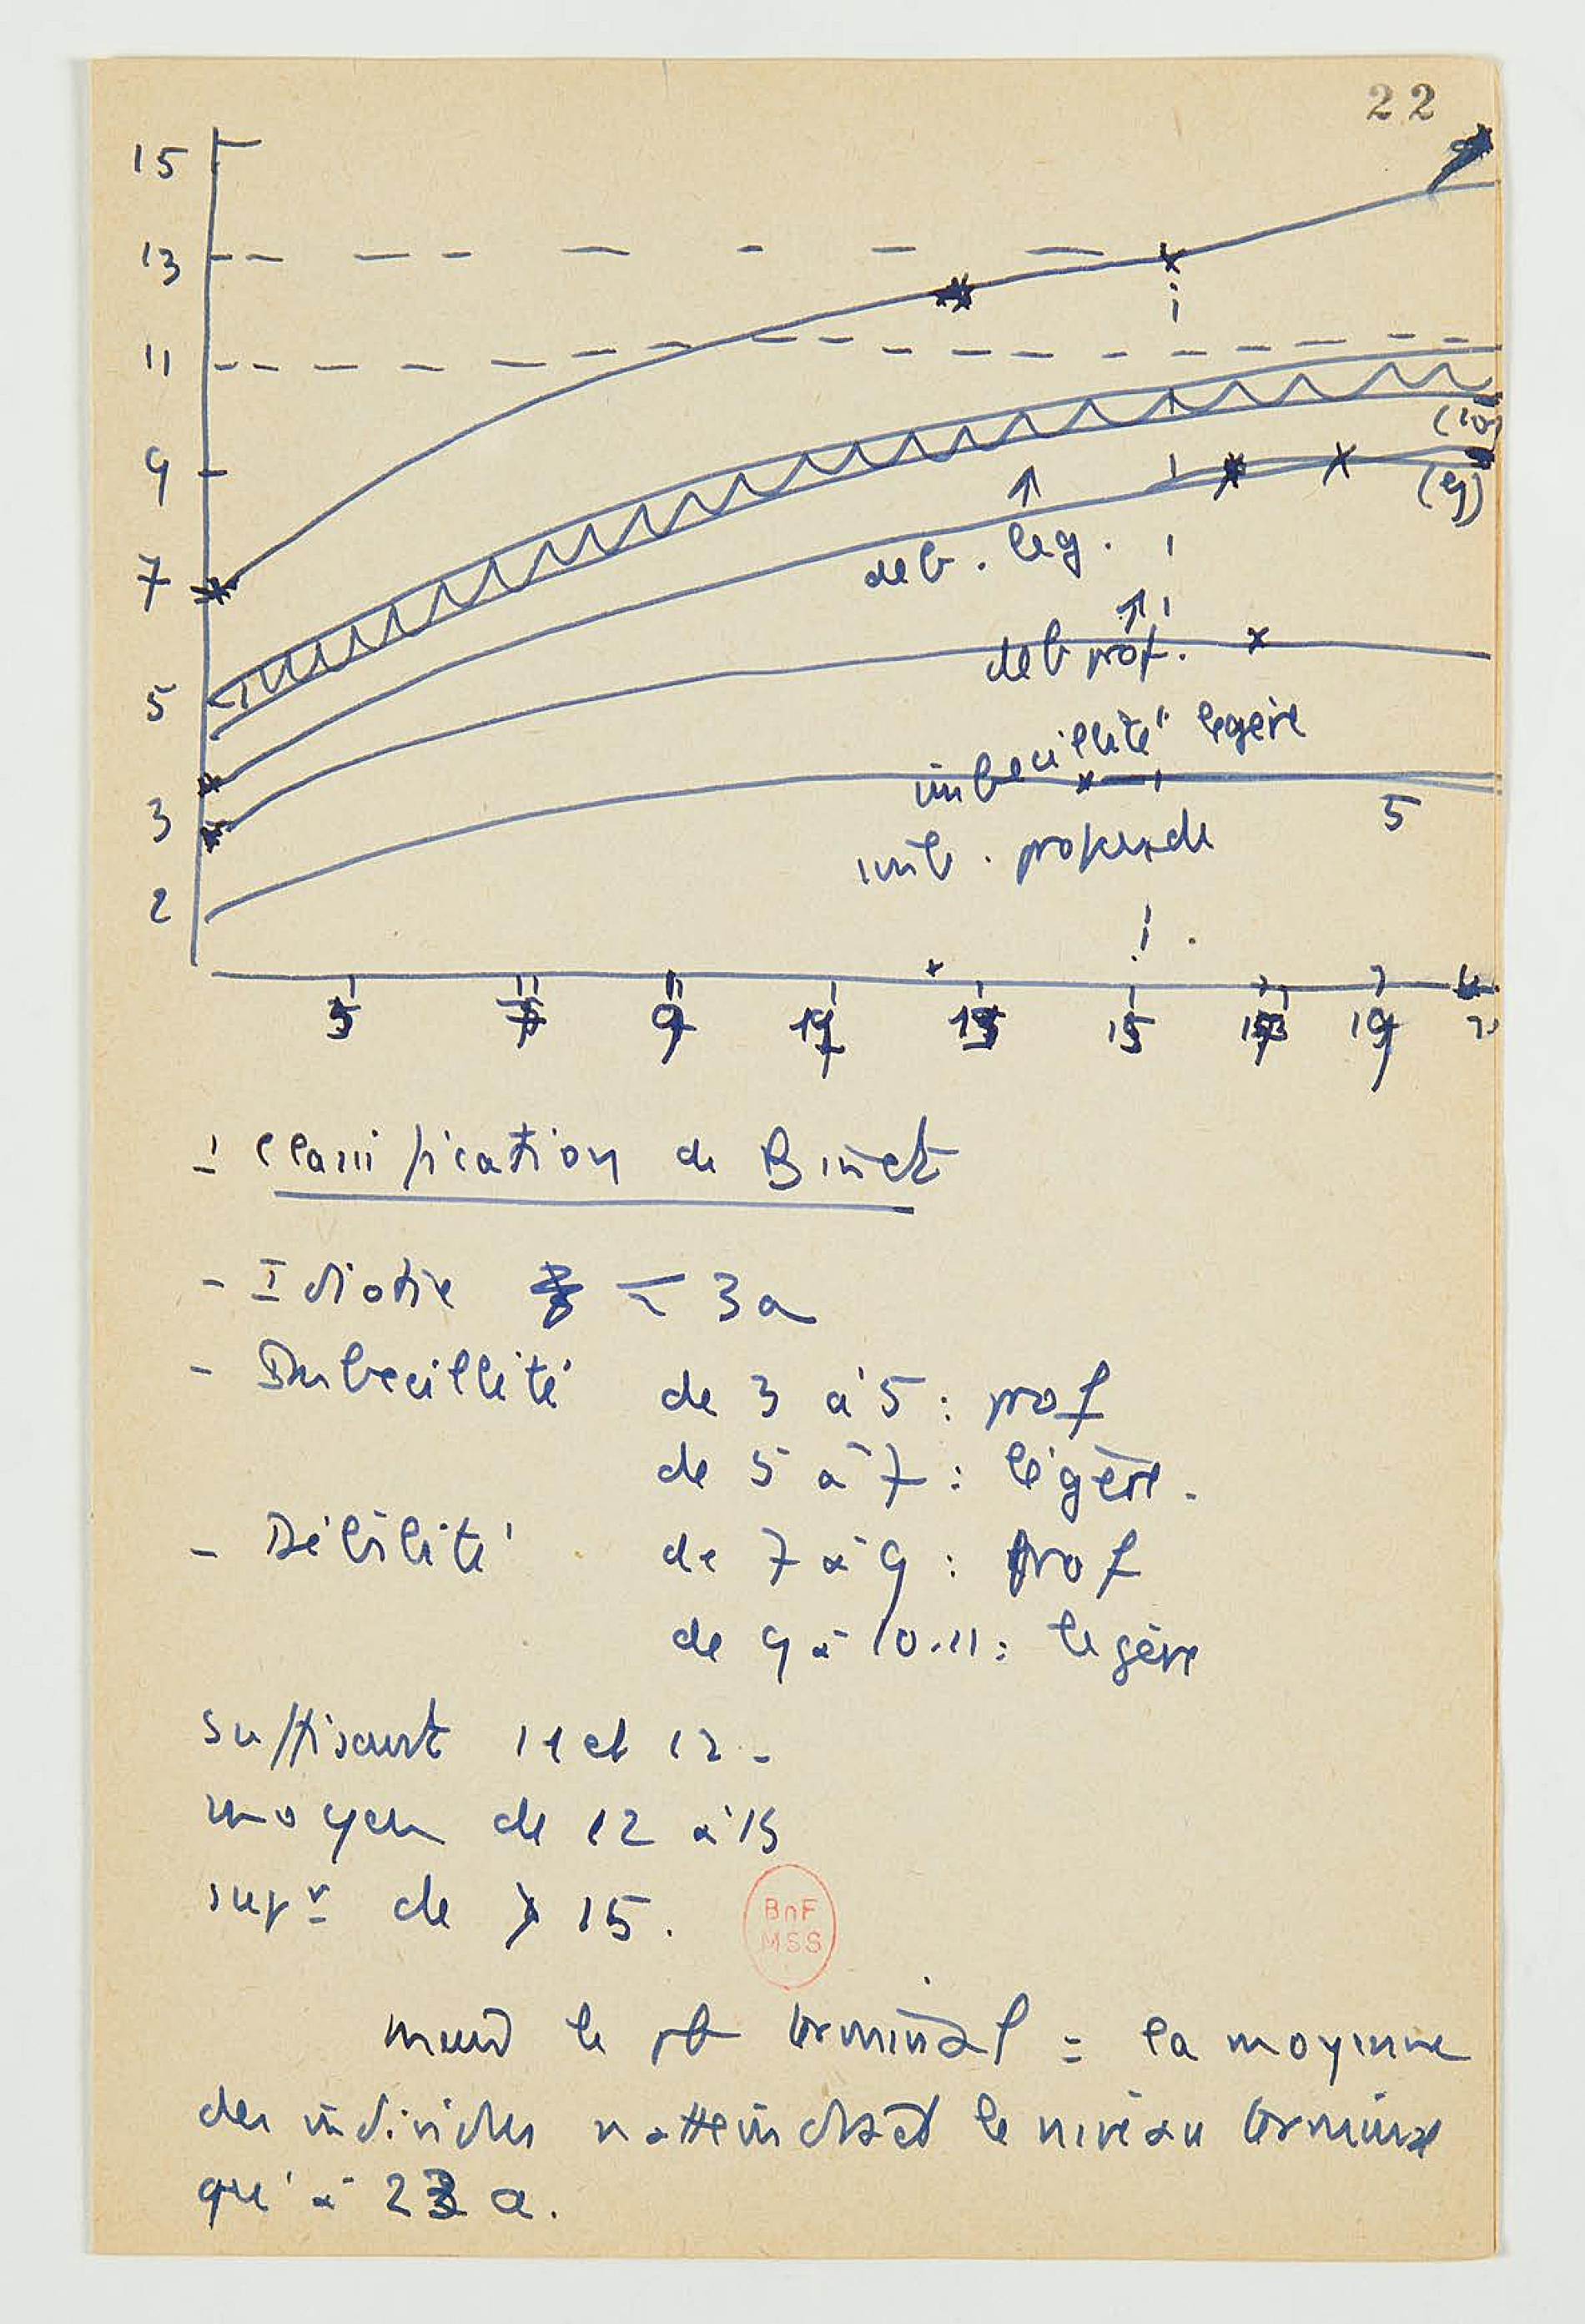 22
15
13
11
9
7
5
3
2
(10)
(9)
deb. leg.
deb prof.
imbecillité légère
5
imb. profonde
5 7 9 11 13 15 17 19
- Classification de Binet
- Idiotie < 3a
- Imbecillité de 3 à 5 : prof
de 5 à 7 : légère.
- Débilité de 7 à 9 : prof
de 9 à 10.11 : légère
suffisant 11 et 12 -
moyen de 12 à 15
supr de > 15.
BnF
MSS
le pb terminal = la moyenne
des individus n'atteindrait le niveau terminal
qu'à 23 a.